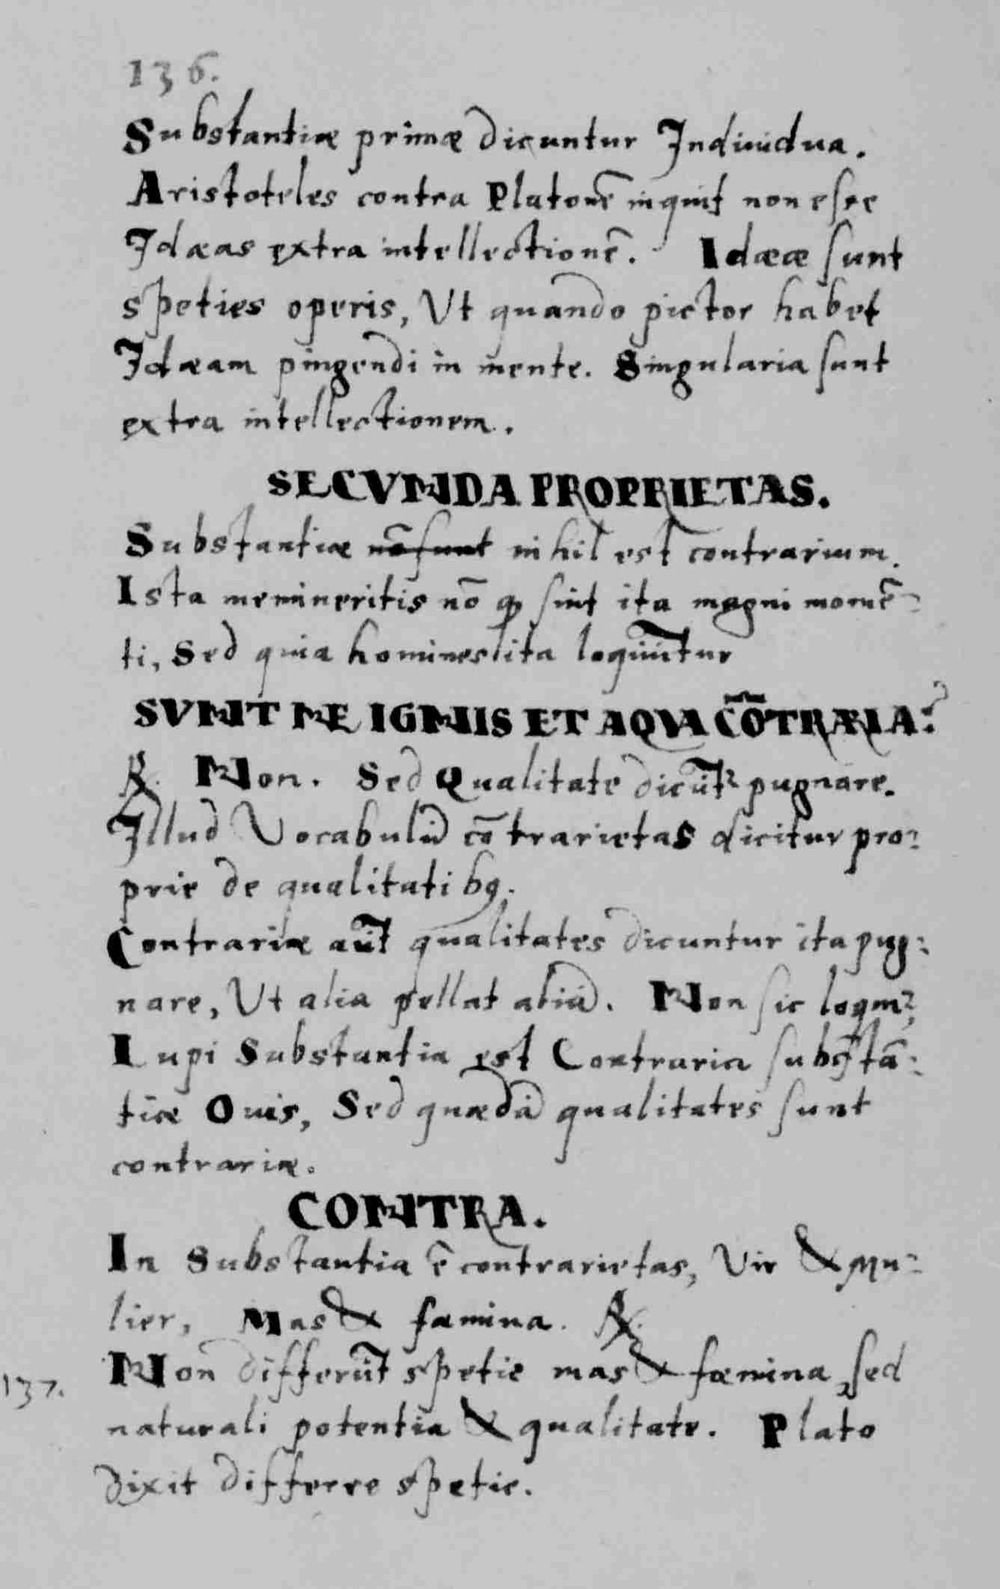 136.
Substantiæ primæ dicuntur Indiuidua.
Aristoteles contra Platonē inquit non esse
Idæas extra intellectionē. Idææ sunt
speties operis, Vt quando pictor habet
Idæam pingendi in mente. Singularia sunt
extra intellectionem.
SECVNDA PROPRIETAS.
Substantiæ nō sunt nihil est contrarium.
Ista memineritis nō ꝙ sint ita magni momē-
ti, Sed quia homines ita loquūtur
SVNT NE IGNIS ET AQVA CŌTRARIA?
℟. Non. Sed Qualitate dicūtr pugnare.
Illud Vocabulū cōtrarietas dicitur pro:
prie de qualitatibꝰ.
Contrariæ aūt qualitates dicuntur ita pug:
nare, Vt alia pellat aliā. Non sic loqmr,
Lupi Substantia est Contraria substā:
tiæ Ouis, Sed quædā qualitates sunt
contrariæ.
CONTRA.
In Substantia ē contrarietas, Vir & Mu:
lier, Mas & fœmina. ℟.
137. Non differūt spetie mas & fœmina, sed
naturali potentia & qualitate. Plato
dixit differre spetie.